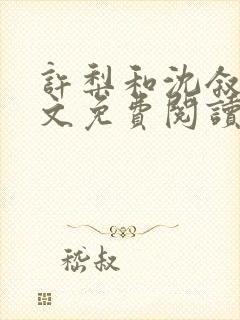 許梨和沈叙
文免費閱讀
嵇叔